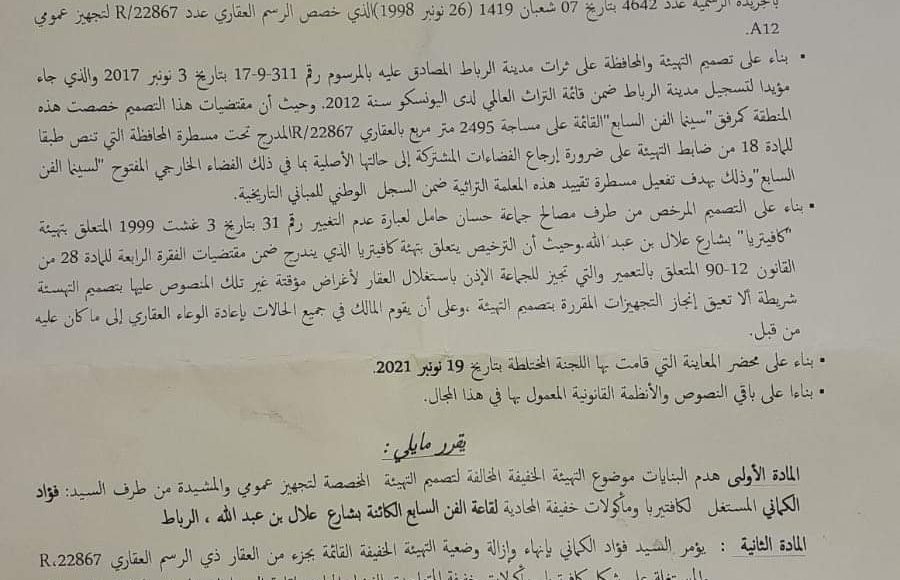 بالجريدة الرسمية عدد 4642 بتاريخ 07 شعبان 1419 (26 نونبر 1998)الذي خصص الرسم العقاري عدد R/22867 لتجهيز عمومي
A12.
▪ بناء على تصميم التهيئة والمحافظة على ثرات مدينة الرباط المصادق عليه بالمرسوم رقم 311-9-17 بتاريخ 3 نونبر 2017 والذي جاء
مؤيدا لتسجيل مدينة الرباط ضمن قائمة التراث العالمي لدى اليونسكو سنة 2012. وحيث أن مقتضيات هذا التصميم خصصت هذه
المنطقة كمرفق"سينما الفن السابع"القائمة على مساحة 2495 متر مربع بالعقاري R/22867المدرج تحت مسطرة المحافظة التي تنص طبقا
للمادة 18 من ضابط التهيئة على ضرورة إرجاع الفضاءات المشتركة إلى حالتها الأصلية بما في ذلك الفضاء الخارجي المفتوح "لسينما الفن
السابع"وذلك بهدف تفعيل مسطرة تقييد هذه المعلمة التراثية ضمن السجل الوطني للمباني التاريخية.
▪ بناء على التصميم المرخص من طرف مصالح جماعة حسان حامل لعبارة عدم التغيير رقم 31 بتاريخ 3 غشت 1999 المتعلق بتهيئة
"كافيتريا" بشارع علال بن عبد الله.وحيث أن الترخيص يتعلق بتهئة كافيتريا الذي يندرج ضمن مقتضيات الفقرة الرابعة للمادة 28 من
القانون 12-90 المتعلق بالتعمير والتي تجيز للجماعة الإذن باستغلال العقار لأغراض مؤقتة غير تلك المنصوص عليها بتصميم التهيئة
شريطة ألا تعيق إنجاز التجهيزات المقررة بتصميم التهيئة ،وعلى أن يقوم المالك في جميع الحالات بإعادة الوعاء العقاري إلى ما كان عليه
من قبل.
▪ بناء على محضر المعاينة التي قامت بها اللجنة المختلطة بتاريخ 19 نونبر 2021.
▪ بناءا على باقي النصوص والأنظمة القانونية المعمول بها في هذا المجال.
يقرر مايلي :
المادة الأولى هدم البنايات موضوع التهيئة الخفيفة المخالفة لتصميم التهيئة المخصصة لتجهيز عمومي والمشيدة من طرف السيد: فؤاد
الكماني المستغل لكافتيريا ومأكولات خفيفة المحادية لقاعة الفن السابع الكائنة بشارع علال بن عبد الله ، الرباط
المادة الثانية : يؤمر السيد فؤاد الكماني بإنهاء وإزالة وضعية التهيئة الخفيفة القائمة بجزء من العقار ذي الرسم العقاري R،22867